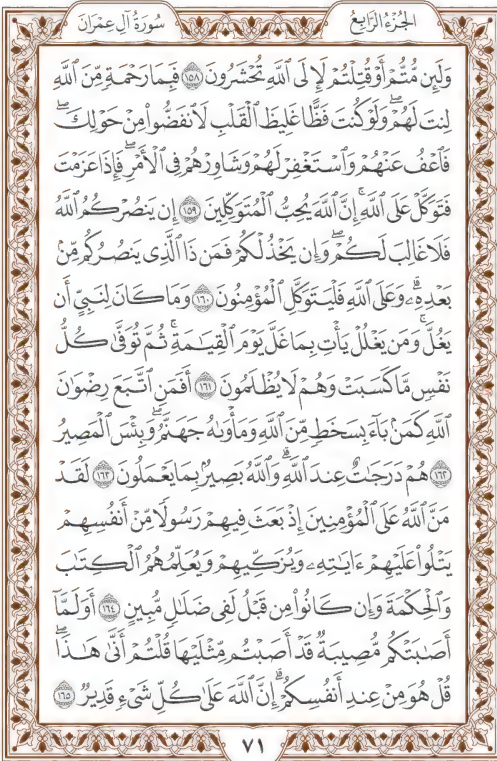 الجُزْءُ الرَّابِعُ
سُورَةُ آلِ عِمْرَانَ
وَلَئِن مُّتُّمْ أَوْ قُتِلْتُمْ لَإِلَى ٱللَّهِ تُحْشَرُونَ ١٥٨ فَبِمَا رَحْمَةٍ مِّنَ ٱللَّهِ
لِنتَ لَهُمْ ۖ وَلَوْ كُنتَ فَظًّا غَلِيظَ ٱلْقَلْبِ لَٱنفَضُّوا۟ مِنْ حَوْلِكَ ۖ
فَٱعْفُ عَنْهُمْ وَٱسْتَغْفِرْ لَهُمْ وَشَاوِرْهُمْ فِى ٱلْأَمْرِ ۖ فَإِذَا عَزَمْتَ
فَتَوَكَّلْ عَلَى ٱللَّهِ ۚ إِنَّ ٱللَّهَ يُحِبُّ ٱلْمُتَوَكِّلِينَ ١٥٩ إِن يَنصُرْكُمُ ٱللَّهُ
فَلَا غَالِبَ لَكُمْ ۖ وَإِن يَخْذُلْكُمْ فَمَن ذَا ٱلَّذِى يَنصُرُكُم مِّنۢ
بَعْدِهِۦ ۗ وَعَلَى ٱللَّهِ فَلْيَتَوَكَّلِ ٱلْمُؤْمِنُونَ ١٦٠ وَمَا كَانَ لِنَبِىٍّ أَن
يَغُلَّ ۚ وَمَن يَغْلُلْ يَأْتِ بِمَا غَلَّ يَوْمَ ٱلْقِيَٰمَةِ ۚ ثُمَّ تُوَفَّىٰ كُلُّ
نَفْسٍ مَّا كَسَبَتْ وَهُمْ لَا يُظْلَمُونَ ١٦١ أَفَمَنِ ٱتَّبَعَ رِضْوَٰنَ
ٱللَّهِ كَمَنۢ بَآءَ بِسَخَطٍ مِّنَ ٱللَّهِ وَمَأْوَىٰهُ جَهَنَّمُ ۚ وَبِئْسَ ٱلْمَصِيرُ
١٦٢ هُمْ دَرَجَٰتٌ عِندَ ٱللَّهِ ۗ وَٱللَّهُ بَصِيرٌۢ بِمَا يَعْمَلُونَ ١٦٣ لَقَدْ
مَنَّ ٱللَّهُ عَلَى ٱلْمُؤْمِنِينَ إِذْ بَعَثَ فِيهِمْ رَسُولًا مِّنْ أَنفُسِهِمْ
يَتْلُوا۟ عَلَيْهِمْ ءَايَٰتِهِۦ وَيُزَكِّيهِمْ وَيُعَلِّمُهُمُ ٱلْكِتَٰبَ
وَٱلْحِكْمَةَ وَإِن كَانُوا۟ مِن قَبْلُ لَفِى ضَلَٰلٍ مُّبِينٍ ١٦٤ أَوَلَمَّآ
أَصَٰبَتْكُم مُّصِيبَةٌ قَدْ أَصَبْتُم مِّثْلَيْهَا قُلْتُمْ أَنَّىٰ هَٰذَا ۖ
قُلْ هُوَ مِنْ عِندِ أَنفُسِكُمْ ۗ إِنَّ ٱللَّهَ عَلَىٰ كُلِّ شَىْءٍ قَدِيرٌ ١٦٥
٧١